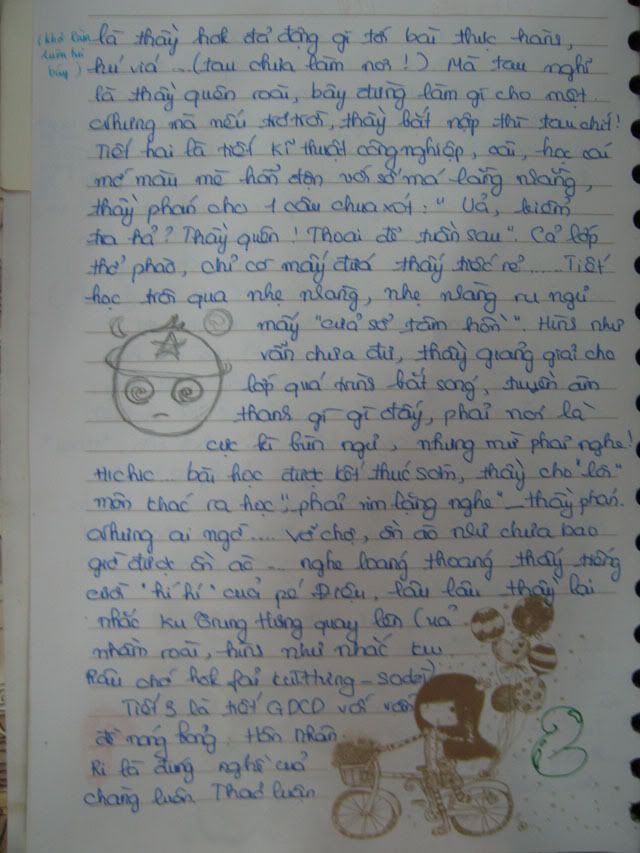 (khó lắm
luôn hú
bây)
là thầy hok đả động gì tới bài thực hành,
hú viá ... (tau chưa làm nơi!) Mà tau nghĩ
là thầy quên roài, bây đừng làm gì cho mệt.
Nhưng mà nếu trơ trơi, thầy bắt nộp thì tau chit!
Tiết hai là tiết kĩ thuật công nghiệp, oài, học cái
mớ màu mè hổn độn với số má lằng nhằng,
thầy phán cho 1 câu chua xót: " Uả, kiểm
tra hả? Thầy quên! Thoai để tuần sau". Cả lớp
thở phào, chỉ cơ mấy đưá thấy tiếc rẻ ..... Tiết
học trôi qua nhẹ nhàng, nhẹ nhàng ru ngủ
mấy "cưả sổ tâm hồn". Hình như
vẫn chưa đủ, thầy giảng giải cho
lớp quá trình bắt sóng, truyền âm
thanh gì gì đấy, phải nơi là
cực kì bùn ngủ, nhưng mừ phải nghe!
Hichic ... bài học được kết thúc sớm, thầy cho "lôi"
môn khác ra học", phải im lặng nghe" _ thầy phán.
Nhưng ai ngờ .... vỡ chợ, ồn ào như chưa bao
giờ được ồn ào ... nghe loáng thoáng thấy tiếng
cười "hí hí" cuả pé Diệu, lâu lâu thầy lại
nhắc ku Trung Hưng quay lên (uả
nhầm roài, hình như nhắc ku
Râu chớ hok fải
Tiết 3 là tiết GDCD với vấn
đề nóng bỏng: Hôn nhân
Ri là đúng nghề cuả
chàng luôn Thảo luận
2